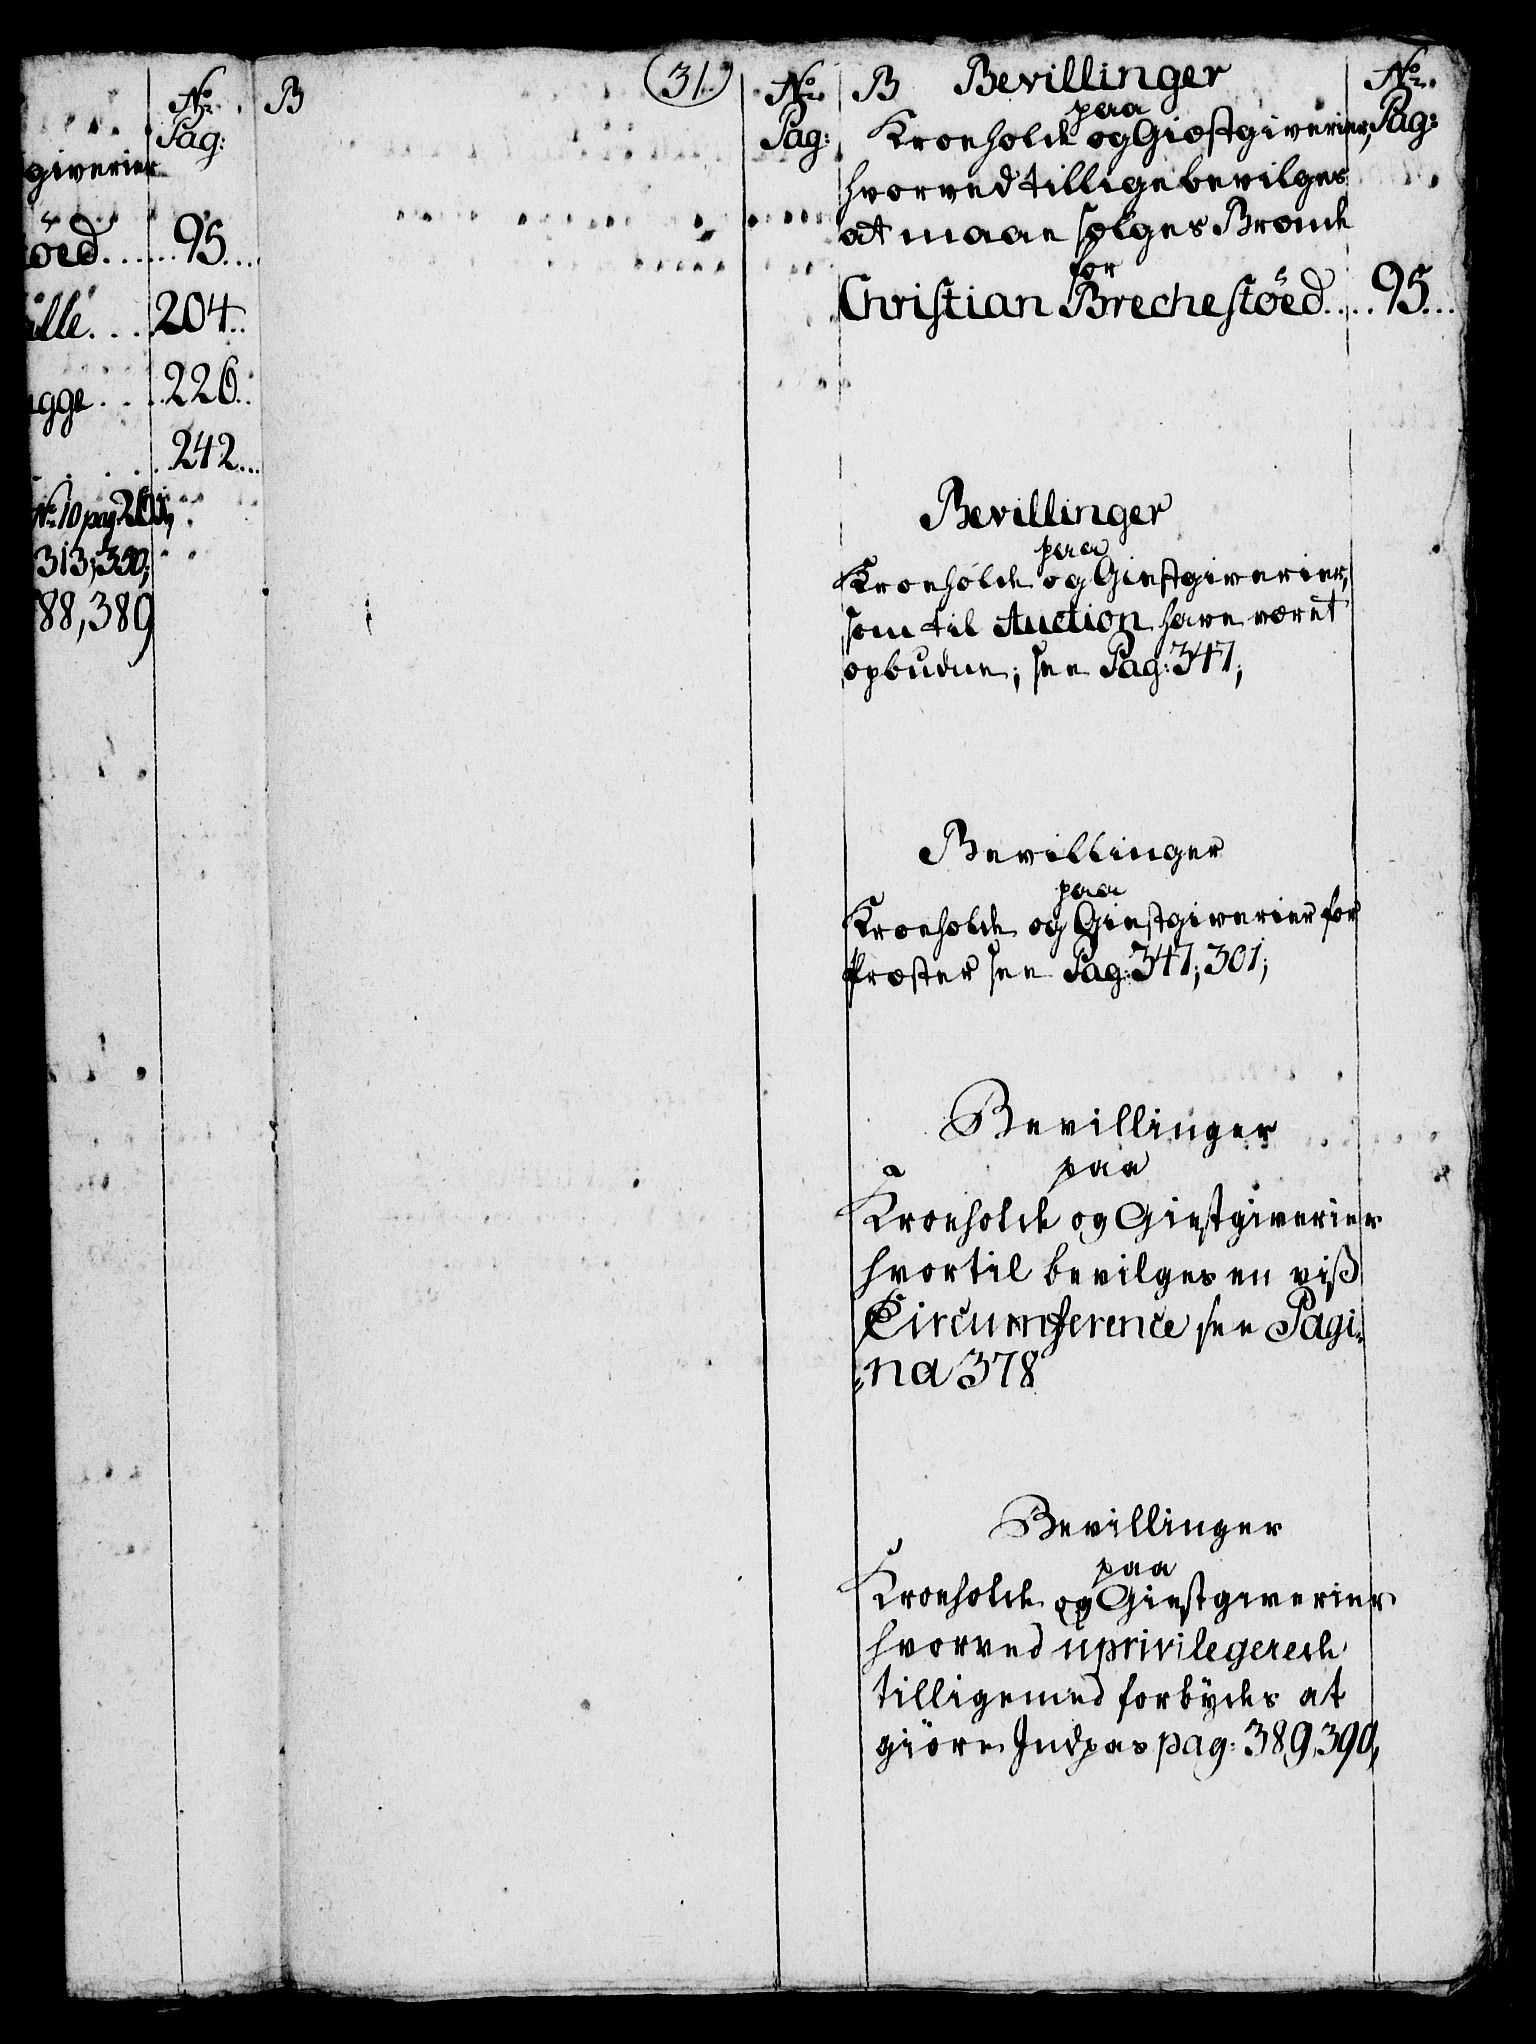 No.
Pag:
giverier
öed......95...
204..
gge....226..
....242...
No. 10 pag
313,350;
88,389
B
31.
No.
Pag:
B Bevillinger
No.
Pag:
paa
Kroehold og Giæstgiverier,
hvorved tillige bevilges
at maae sælges Brænde
for
Christian Brechestöed....95...
Bevillinger
paa
Kroehold og Giestgiverier,
som til Auction have været
opbudne; see Pag: 347;
Bevillinger
paa
Kroehold og Giestgiverier for
Præster see Pag: 347; 301;
Bevillinger
paa
Kroehold og Giestgiverier
hvortil bevilges en viß
Circumference see Pagi-
na 378
Bevillinger
paa
Kroehold og Giestgiverier
hvorved uprivilegerede
tilligemed forbydes at
giöre Indpas pag: 389, 390,